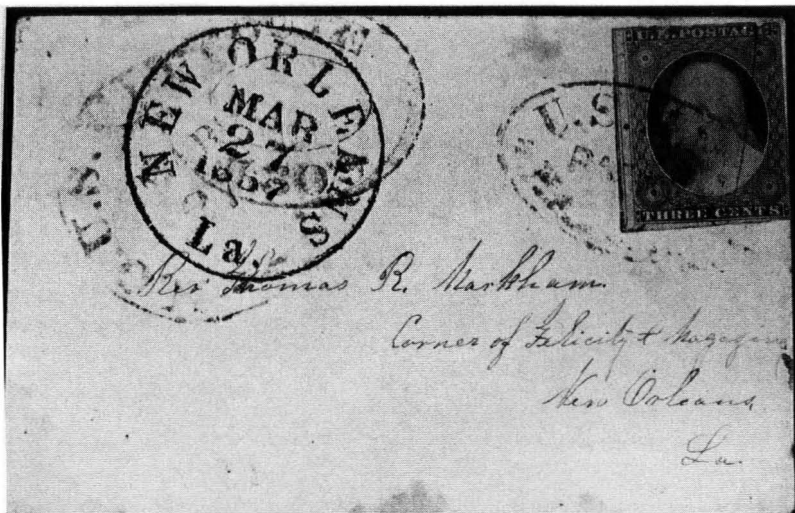 NEW ORLEANS
MAR
27
1857
La.
U.S.
U.S.
U.S. POSTAGE
THREE CENTS
Rev Thomas R. Markham.
Corner of Felicity & Magazine
New Orleans
La.